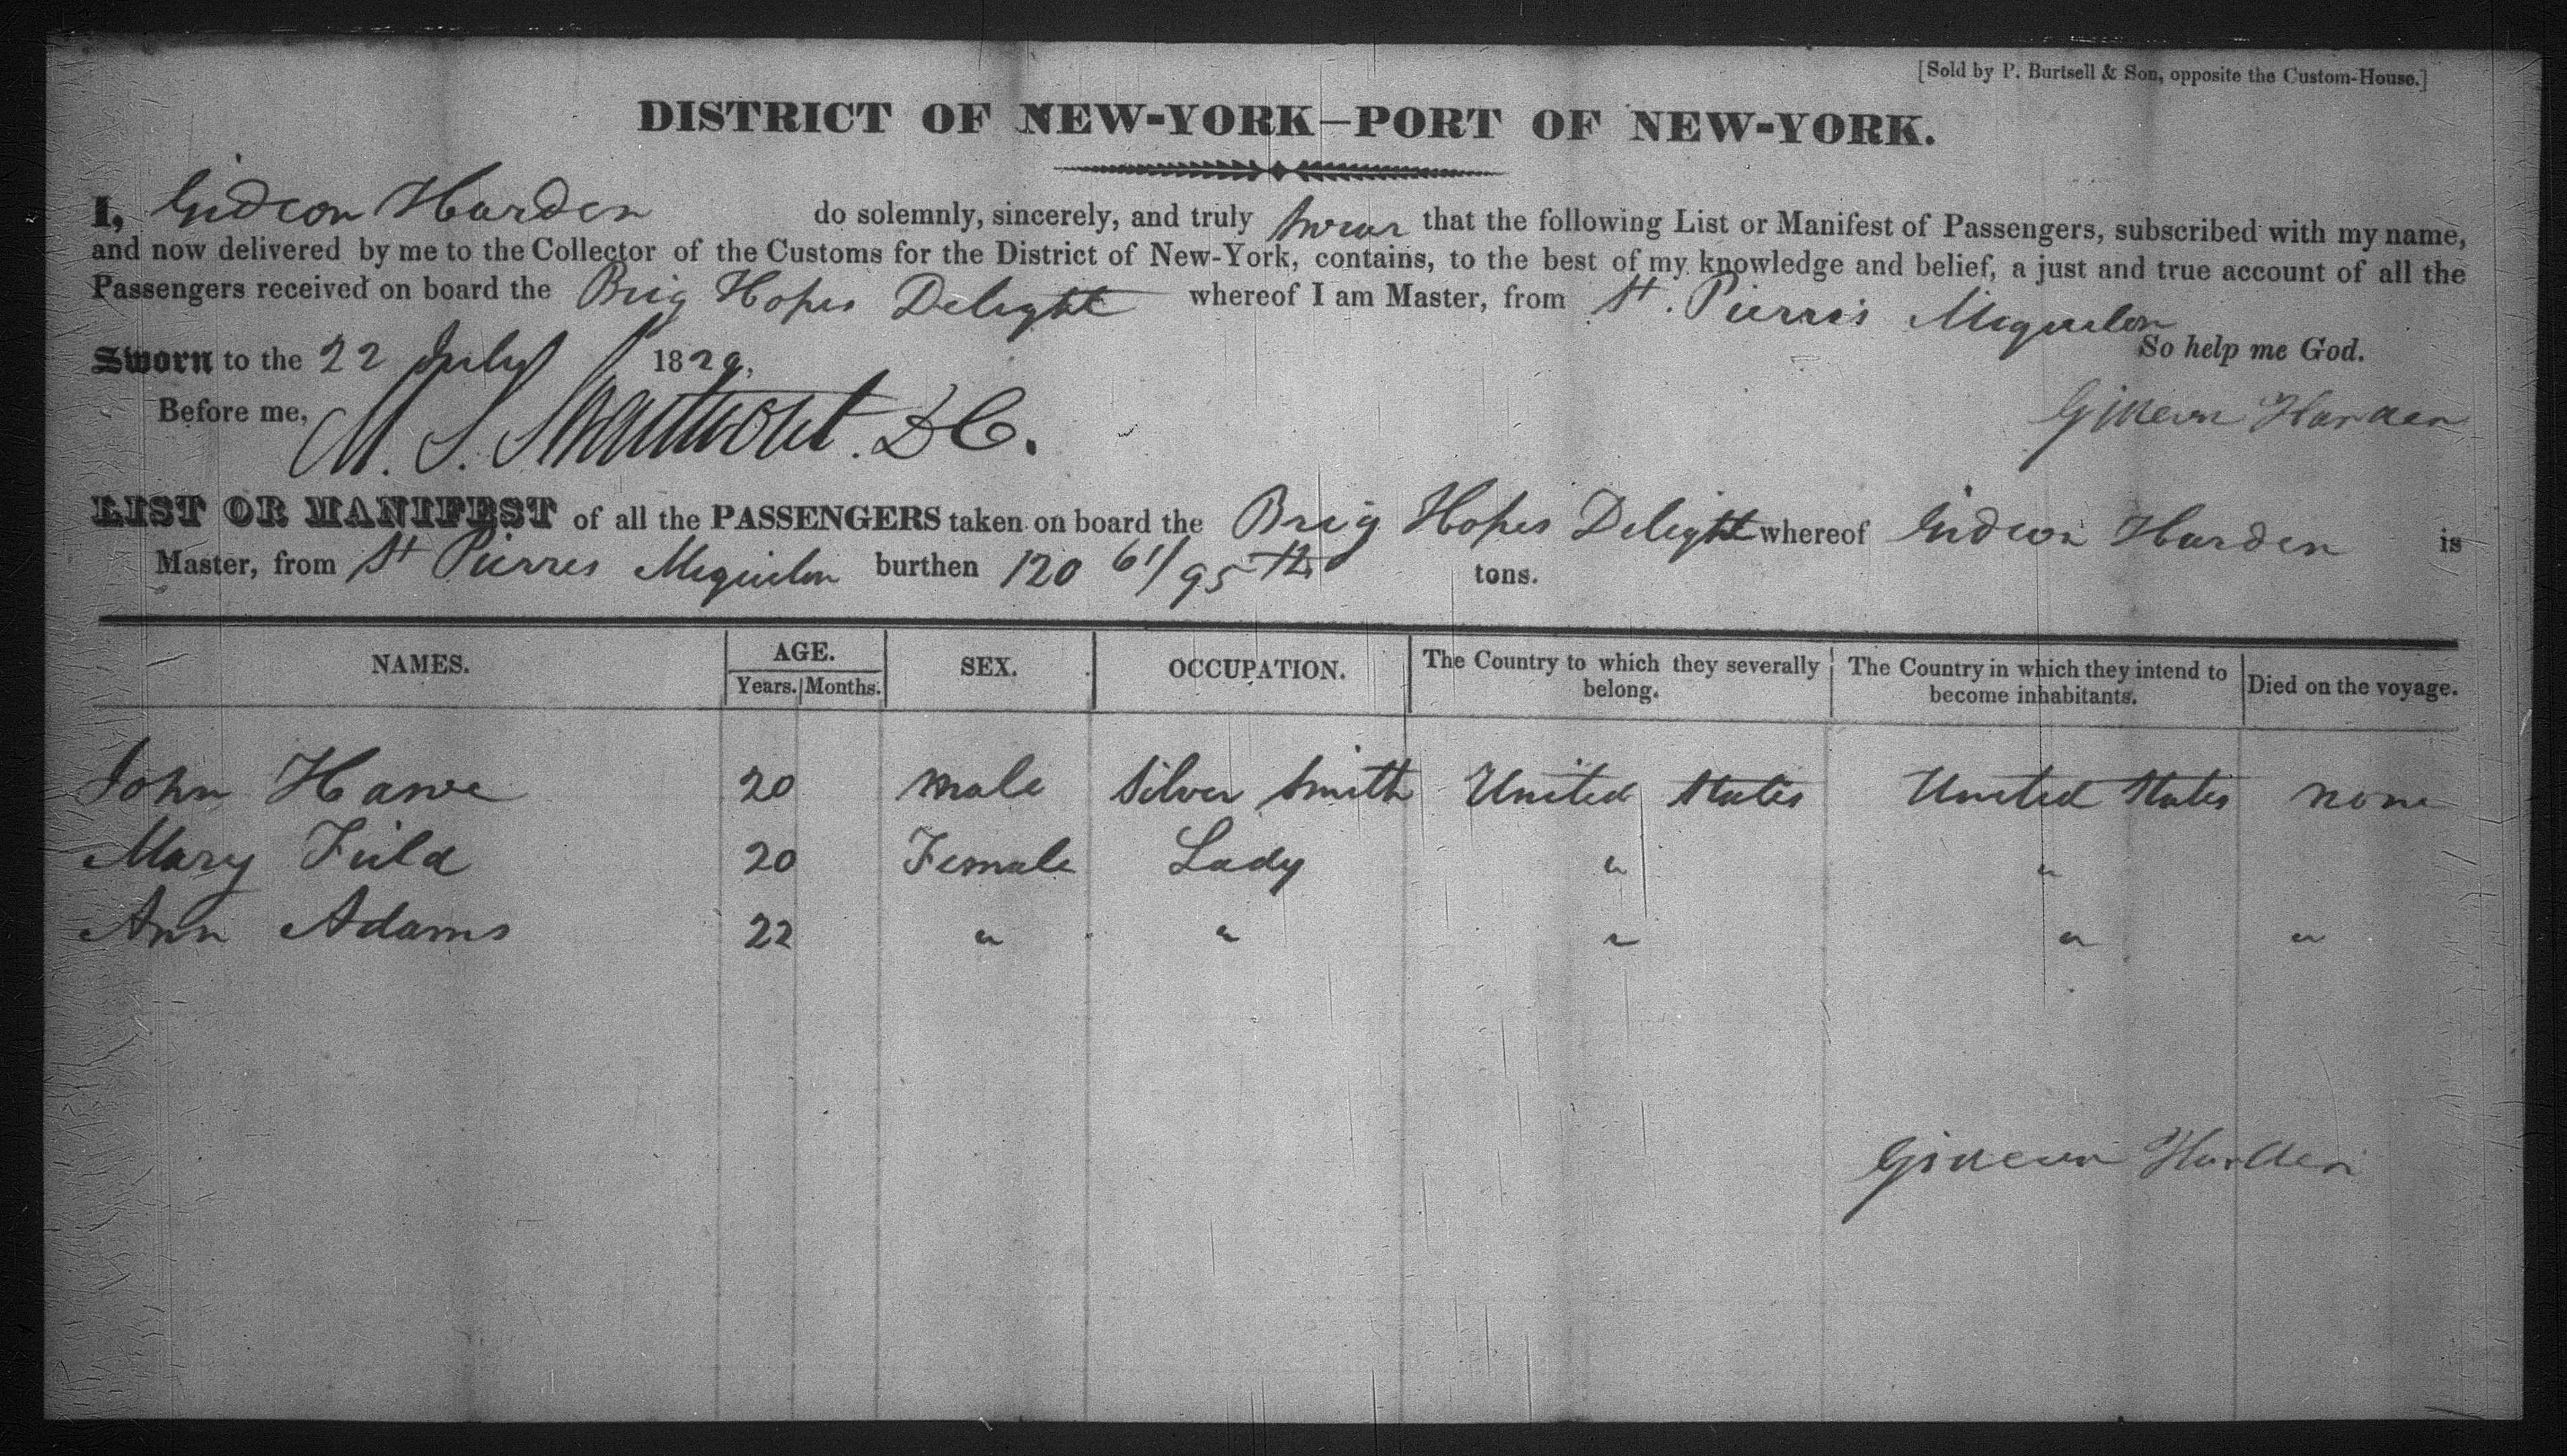 [Sold by P. Burtsell & Son, opposite the Custom-House.]
DISTRICT OF NEW-YORK—PORT OF NEW-YORK.
I, Gideon Harden do solemnly, sincerely, and truly swear that the following List or Manifest of Passengers, subscribed with my name,
and now delivered by me to the Collector of the Customs for the District of New-York, contains, to the best of my knowledge and belief, a just and true account of all the
Passengers received on board the Brig Hopes Delight whereof I am Master, from St. Pierres Miquelon
So help me God.
Sworn to the 22 July 1829,
Before me, M. S. Swartwout. D C.
Gideon Harden
LIST OR MANIFEST of all the PASSENGERS taken on board the Brig Hopes Delight whereof Gideon Harden is
Master, from St Pierres Miquelon burthen 120 61/95ths tons.
NAMES. AGE. SEX. OCCUPATION. The Country to which they severally belong. The Country in which they intend to become inhabitants. Died on the voyage.
Years. Months.
John 20 male Silver Smith United States United States none
Mary Field 20 Female Lady " "
Ann Adams 22 " " " " "
Gideon Harden